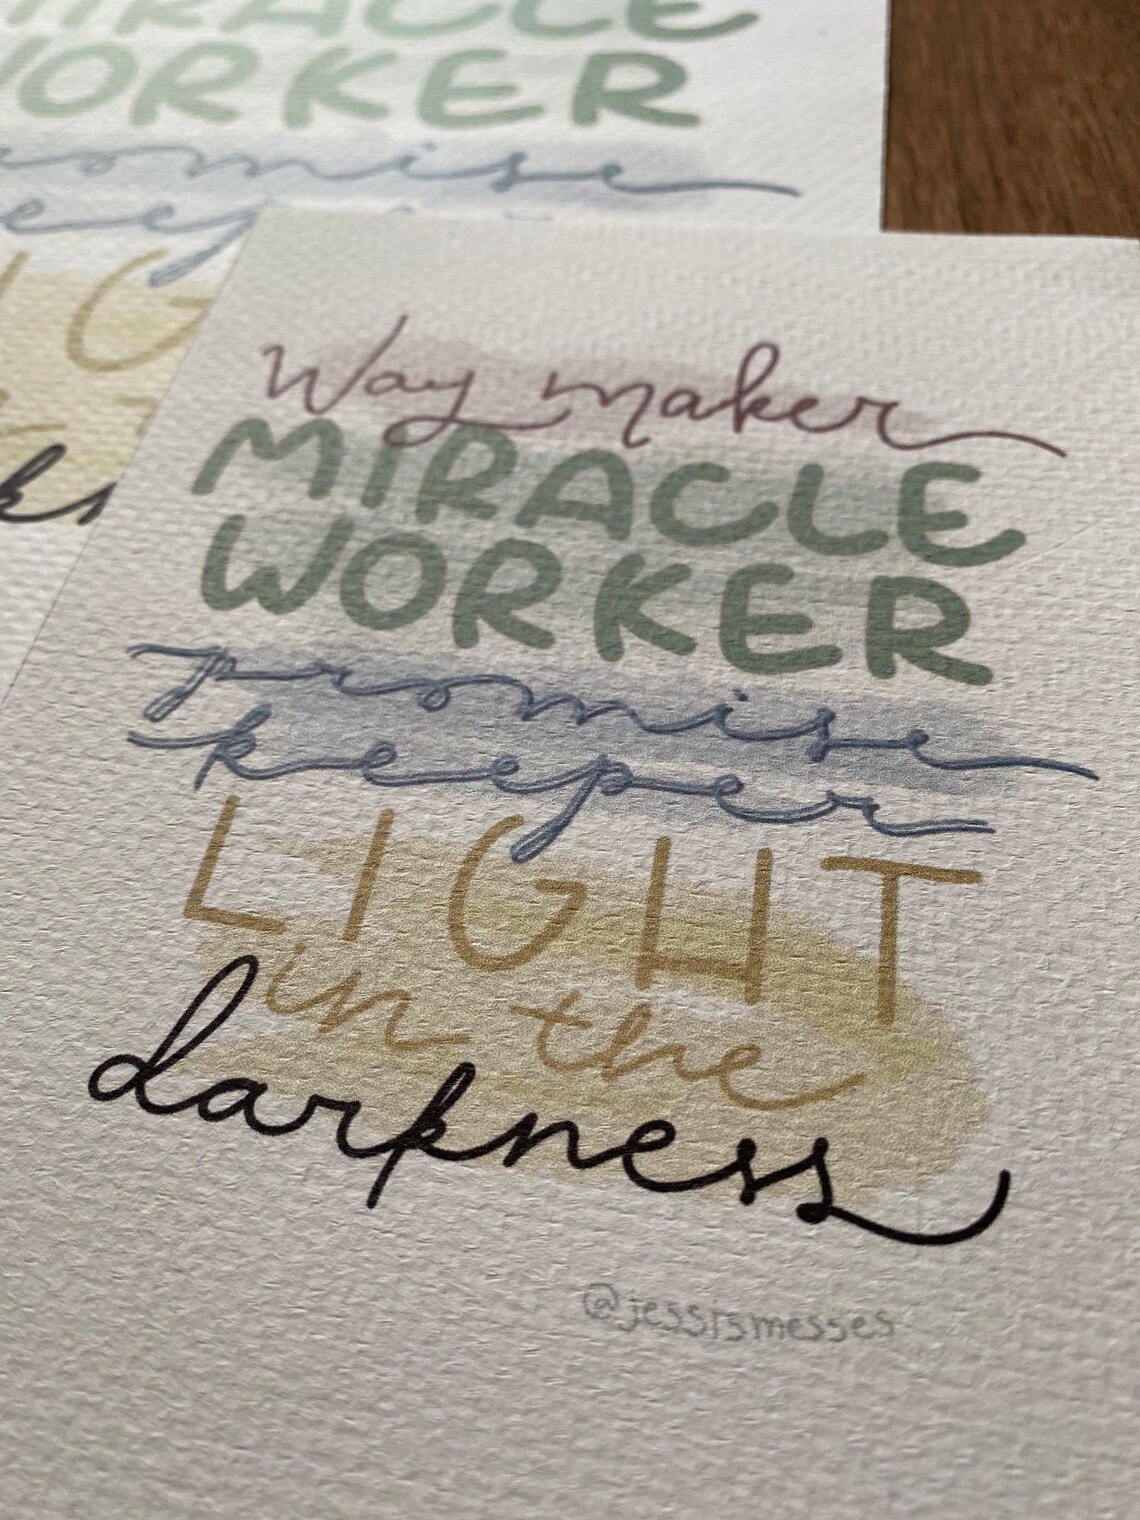 MIRACLE
WORKER
promise
keeper
Way maker
MIRACLE
WORKER
promise
keeper
LIGHT
in the
darkness
@jessismesses